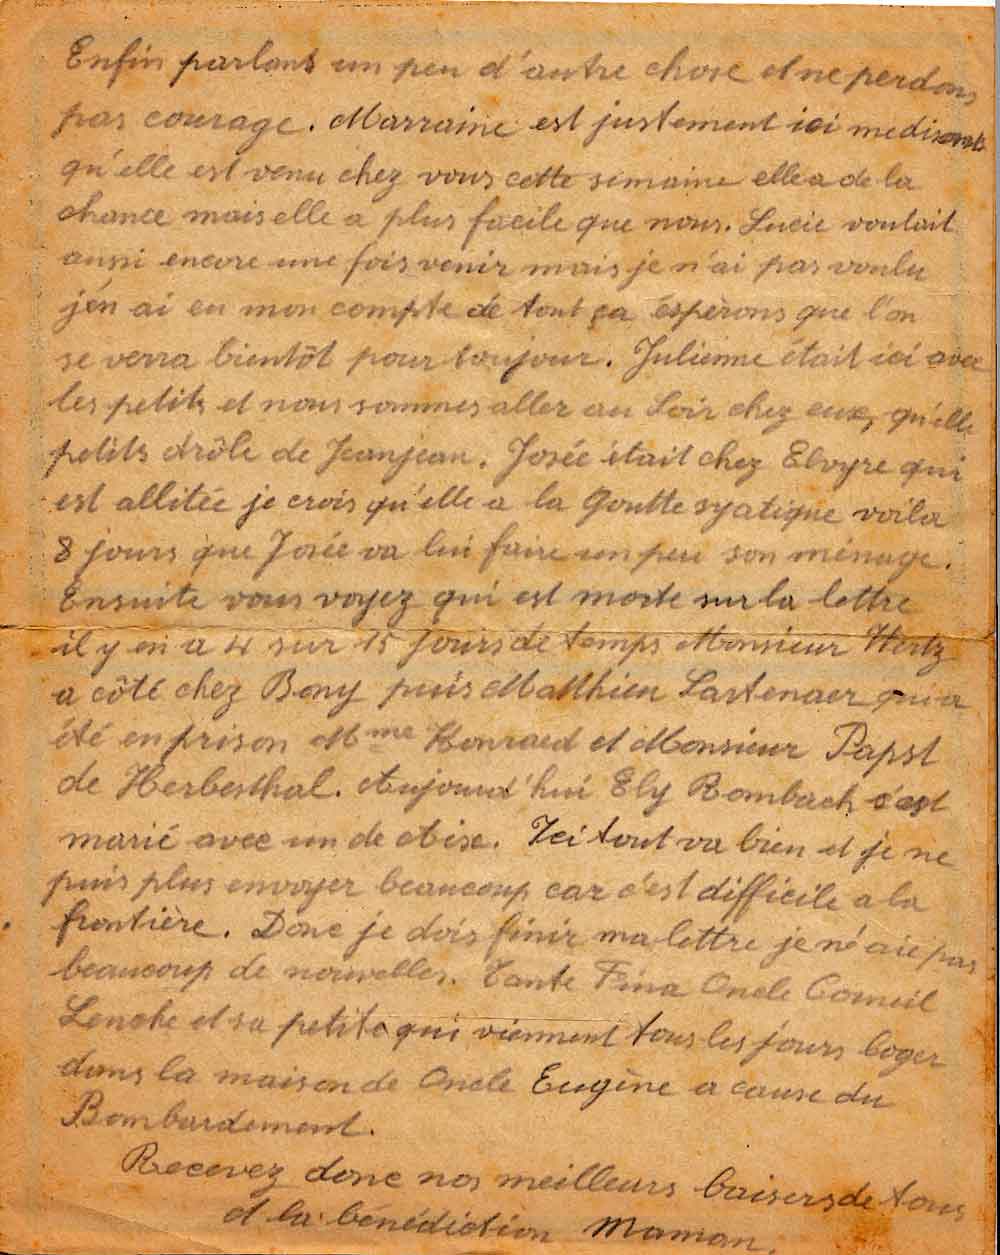 Enfin parlons un peu d'autre chose et ne perdons
pas courage. Marraine est justement ici me disant
qu'elle est venu chez vous cette semaine elle a de la
chance mais elle a plus facile que nous. Lucie voulait
aussi encore une fois venir mais je n'ai pas voulu
j'en ai eu mon compte de tout ça éspèrons que l'on
se verra bientôt pour toujour. Julienne était ici avec
les petits et nous sommes aller au Soir chez eux, qu'elle
petits drôle de Jeanjean. Josée était chez Elvyre qui
est allitée je crois qu'elle a la Goutte syatique voila
8 jours que Josée va lui faire un peu son ménage.
Ensuite vous voyez qui est morte sur la lettre
il y en a 4 sur 15 Jours de temps Monsieur Hertz
a côté chez Bony puis Matthieu Lastenaer qui a
été en prison Mme Konraed et Monsieur Papst
de Herbesthal. Aujourd'hui Ely Rombach c'est
marié avec un de Mise. Ici tout va bien et je ne
puis plus envoyer beaucoup car c'est difficile a la
frontière. Donc je dois finir ma lettre je n'é aie pas
beaucoup de nouvelles. Tante Fina Oncle Corneil
Lenche et sa petite qui viennent tous les jours loger
dans la maison de Oncle Eugène a cause du
Bombardement.
Recevez donc nos meilleurs baisers de tous
et la bénédiction Maman.